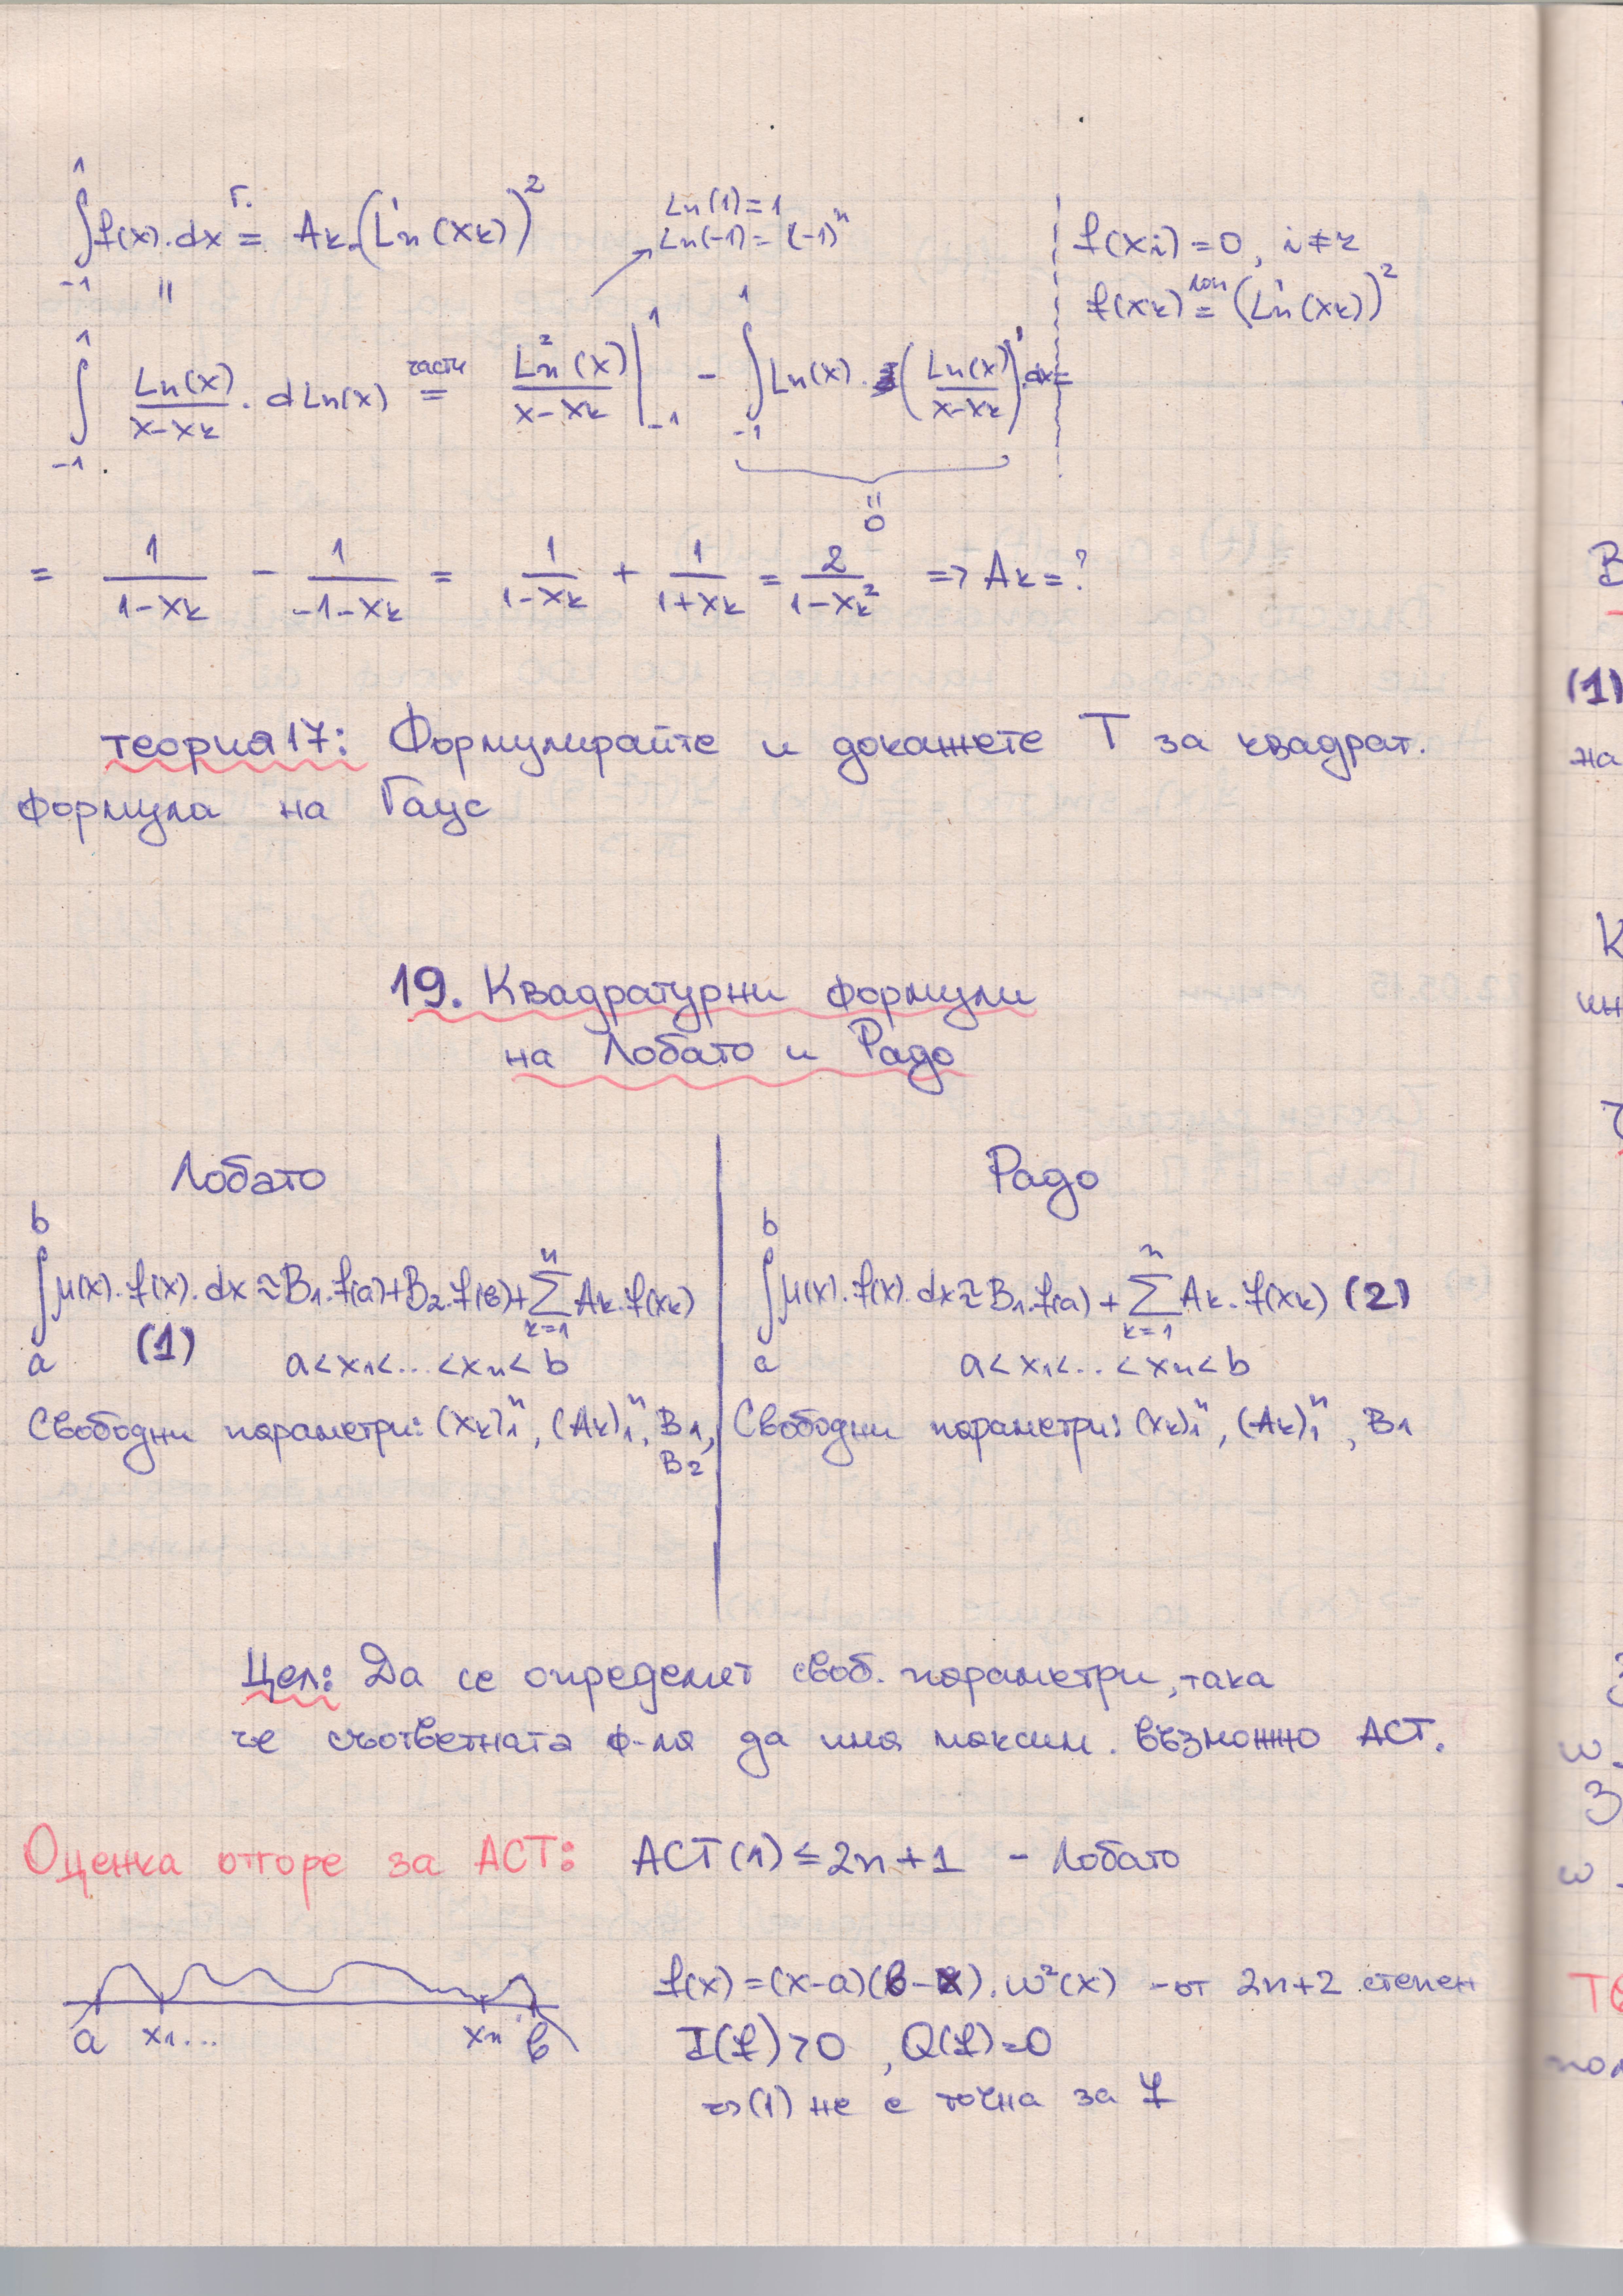 ∫₋₁¹ f(x).dx =(Г.) Aₖ.(Lₙ'(xₖ))²
Ln(1)=1
Ln(-1)=(-1)ⁿ
f(xᵢ)=0, i≠k
f(xₖ) = (Lₙ'(xₖ))²
∫₋₁¹ Ln(x)/(x-xₖ) . dLn(x) =(части) Ln²(x)/(x-xₖ) |₋₁¹ - ∫₋₁¹ Ln(x).(Ln(x)/(x-xₖ))'.dx =
= 0
= 1/(1-xₖ) - 1/(-1-xₖ) = 1/(1-xₖ) + 1/(1+xₖ) = 2/(1-xₖ²) => Aₖ=?
теория17: Формулирайте и докажете Т за квадрат.
формула на Гаус
19. Квадратурни формули
на Лобато и Радо
Лобато
∫ₐᵇ μ(x).f(x).dx ≈ B₁.f(a)+B₂.f(в)+∑ₖ₌₁ⁿ Aₖ.f(xₖ)
(1) a<x₁<...<xₙ<b
Свободни параметри: (xₖ)₁ⁿ, (Aₖ)₁ⁿ, B₁,
B₂
Радо
∫ₐᵇ μ(x).f(x).dx ≈ B₁.f(a) + ∑ₖ₌₁ⁿ Aₖ.f(xₖ) (2)
a<x₁<...<xₙ<b
Свободни параметри: (xₖ)₁ⁿ, (Aₖ)₁ⁿ, B₁
Цел: Да се определят своб. параметри, така
че съответната ф-ла да има максим. възможно АСТ.
Оценка отгоре за АСТ: АСТ(1) ≤ 2n+1 - Лобато
a x₁... xₙ в
f(x)=(x-a)(в-x).w²(x) - от 2n+2 степен
I(f)>0, Q(f)=0
=>(1) не е точна за f